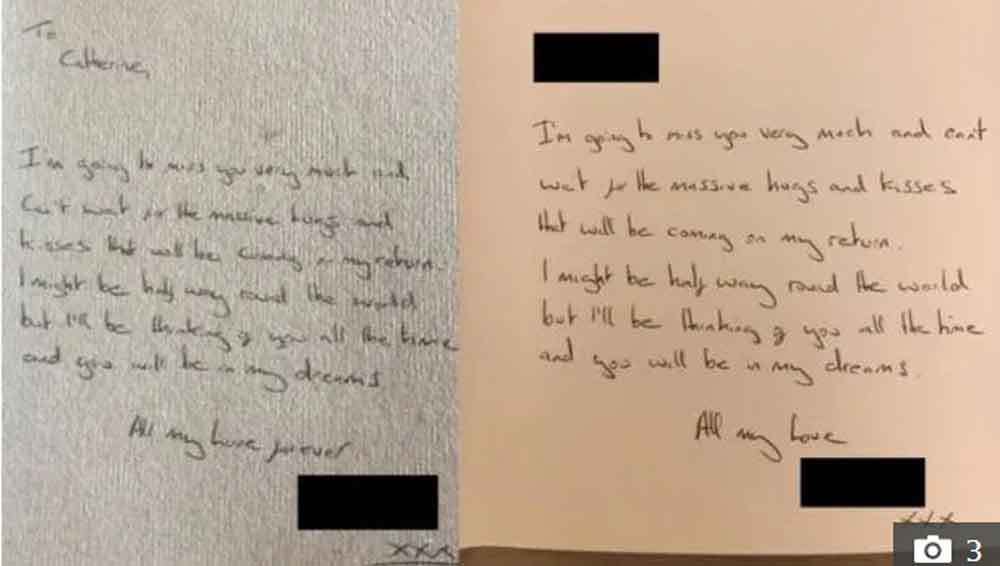 To
Catherine,
I'm going to miss you very much and
can't wait for the massive hugs and
kisses that will be coming on my return.
I might be half way round the world
but I'll be thinking of you all the time
and you will be in my dreams
All my love forever
xxx
I'm going to miss you very much and can't
wait for the massive hugs and kisses
that will be coming on my return.
I might be half way round the world
but I'll be thinking of you all the time
and you will be in my dreams.
All my love
xxx
3